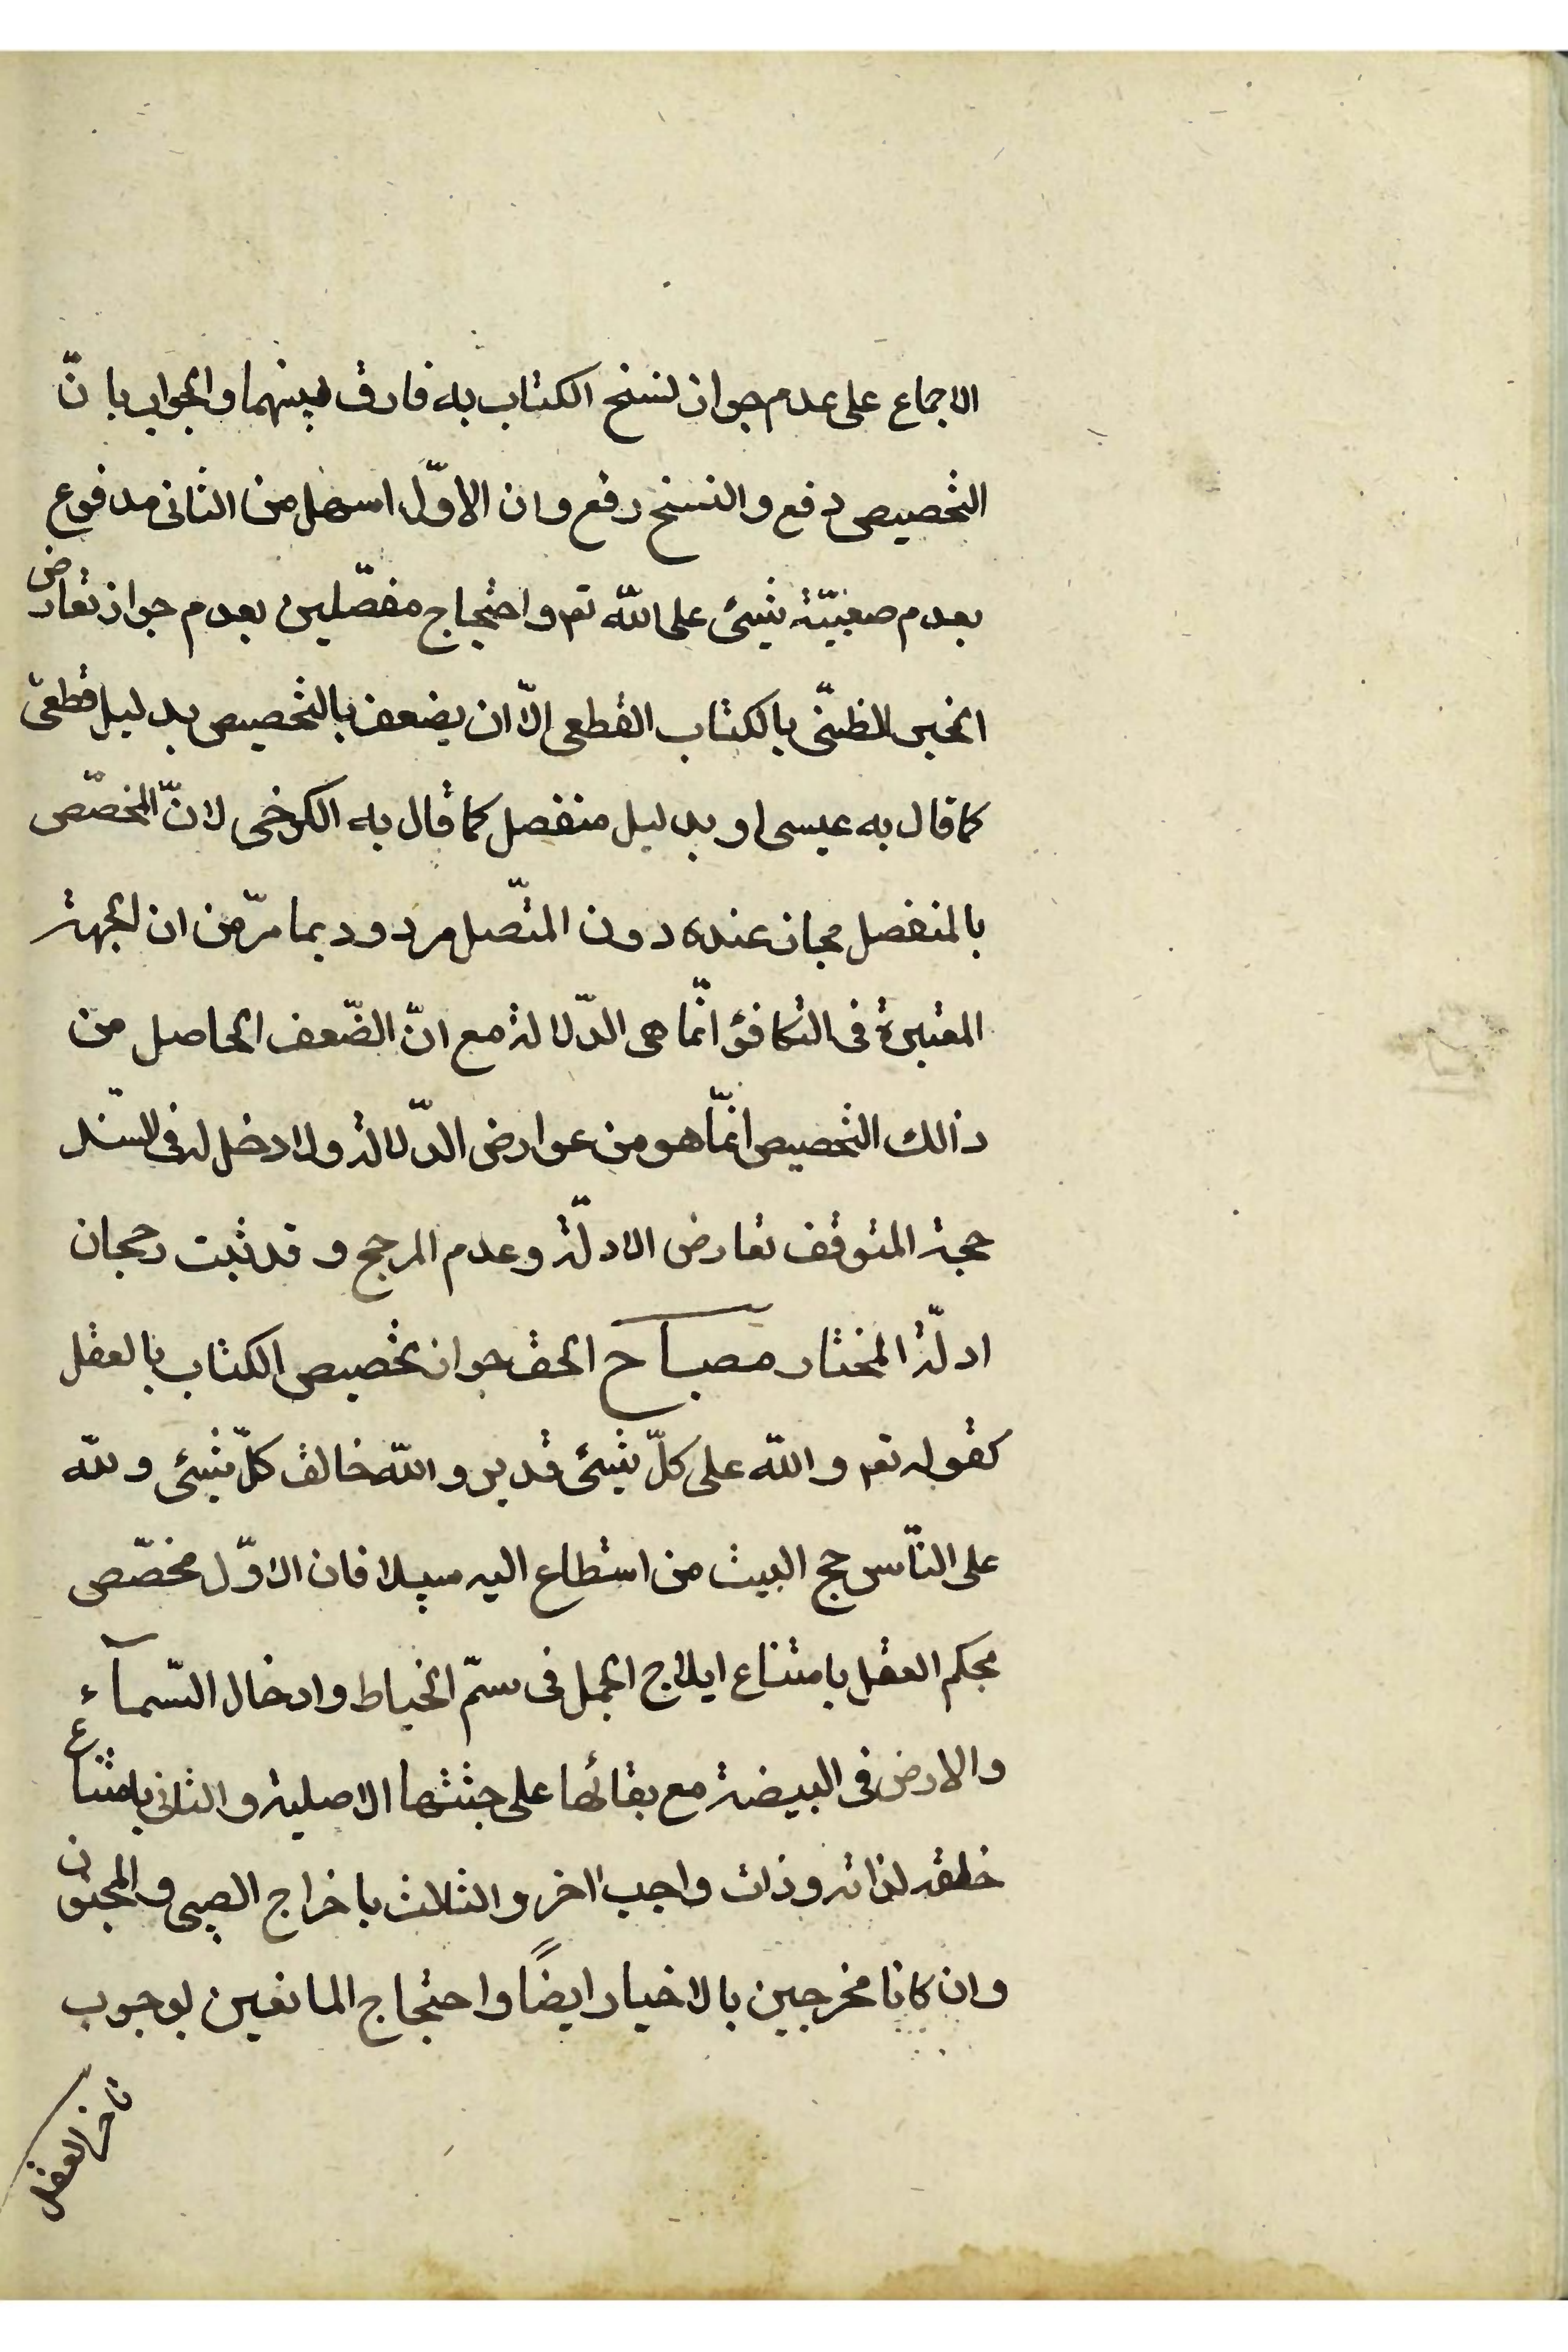 الاجماع على عدم جواز نسخ الكتاب به فارق بينهما والجواب بانّ
التخصيص دفع والنسخ رفع وان الاوّل اسهل من الثانى مدفوع
بعدم صعبيّة شيئ على الله تعم واحتجاج مفصّلين بعدم جواز تعارض
الخبر الظنّى بالكتاب القطعى الّا ان يضعف بالتخصيص بدليل قطعىّ
كما قال به عيسى او بدليل منفصل كما قال به الكرخى لانّ المخصّص
بالمنفصل مجاز عنده دون المتّصل مردود بما مرّ من ان الجهة
المعتبرة فى التكافؤ انّما هى الدّلالة مع انّ الضّعف الحاصل من
ذالك التخصيص انمّا هو من عوارض الدّلالة ولا دخل له فى السّند
حجة المتوقف تعارض الادلّة وعدم المرجح و قد ثبت رجحان
ادلّة المختار مصباح الحق جواز تخصيص الكتاب بالعقل
كقوله تعم والله على كلّ شيئ قدير والله خالق كلّ شيئ ولله
على النّاس حج البيت من استطاع اليه سبيلا فان الاوّل مخصّص
بحكم العقل بامتناع ايلاج الجمل فى سمّ الخياط وادخال السّمآء
والارض فى البيضة مع بقائها على جثتها الاصلية والثانى بامتناع
خلقه لذاته وذات واجب اخر والثلث باخراج الصبى والمجنون
وان كانا مخرجين بالاخبار ايضًا واحتجاج المانعين لوجوب
تاخر العقل